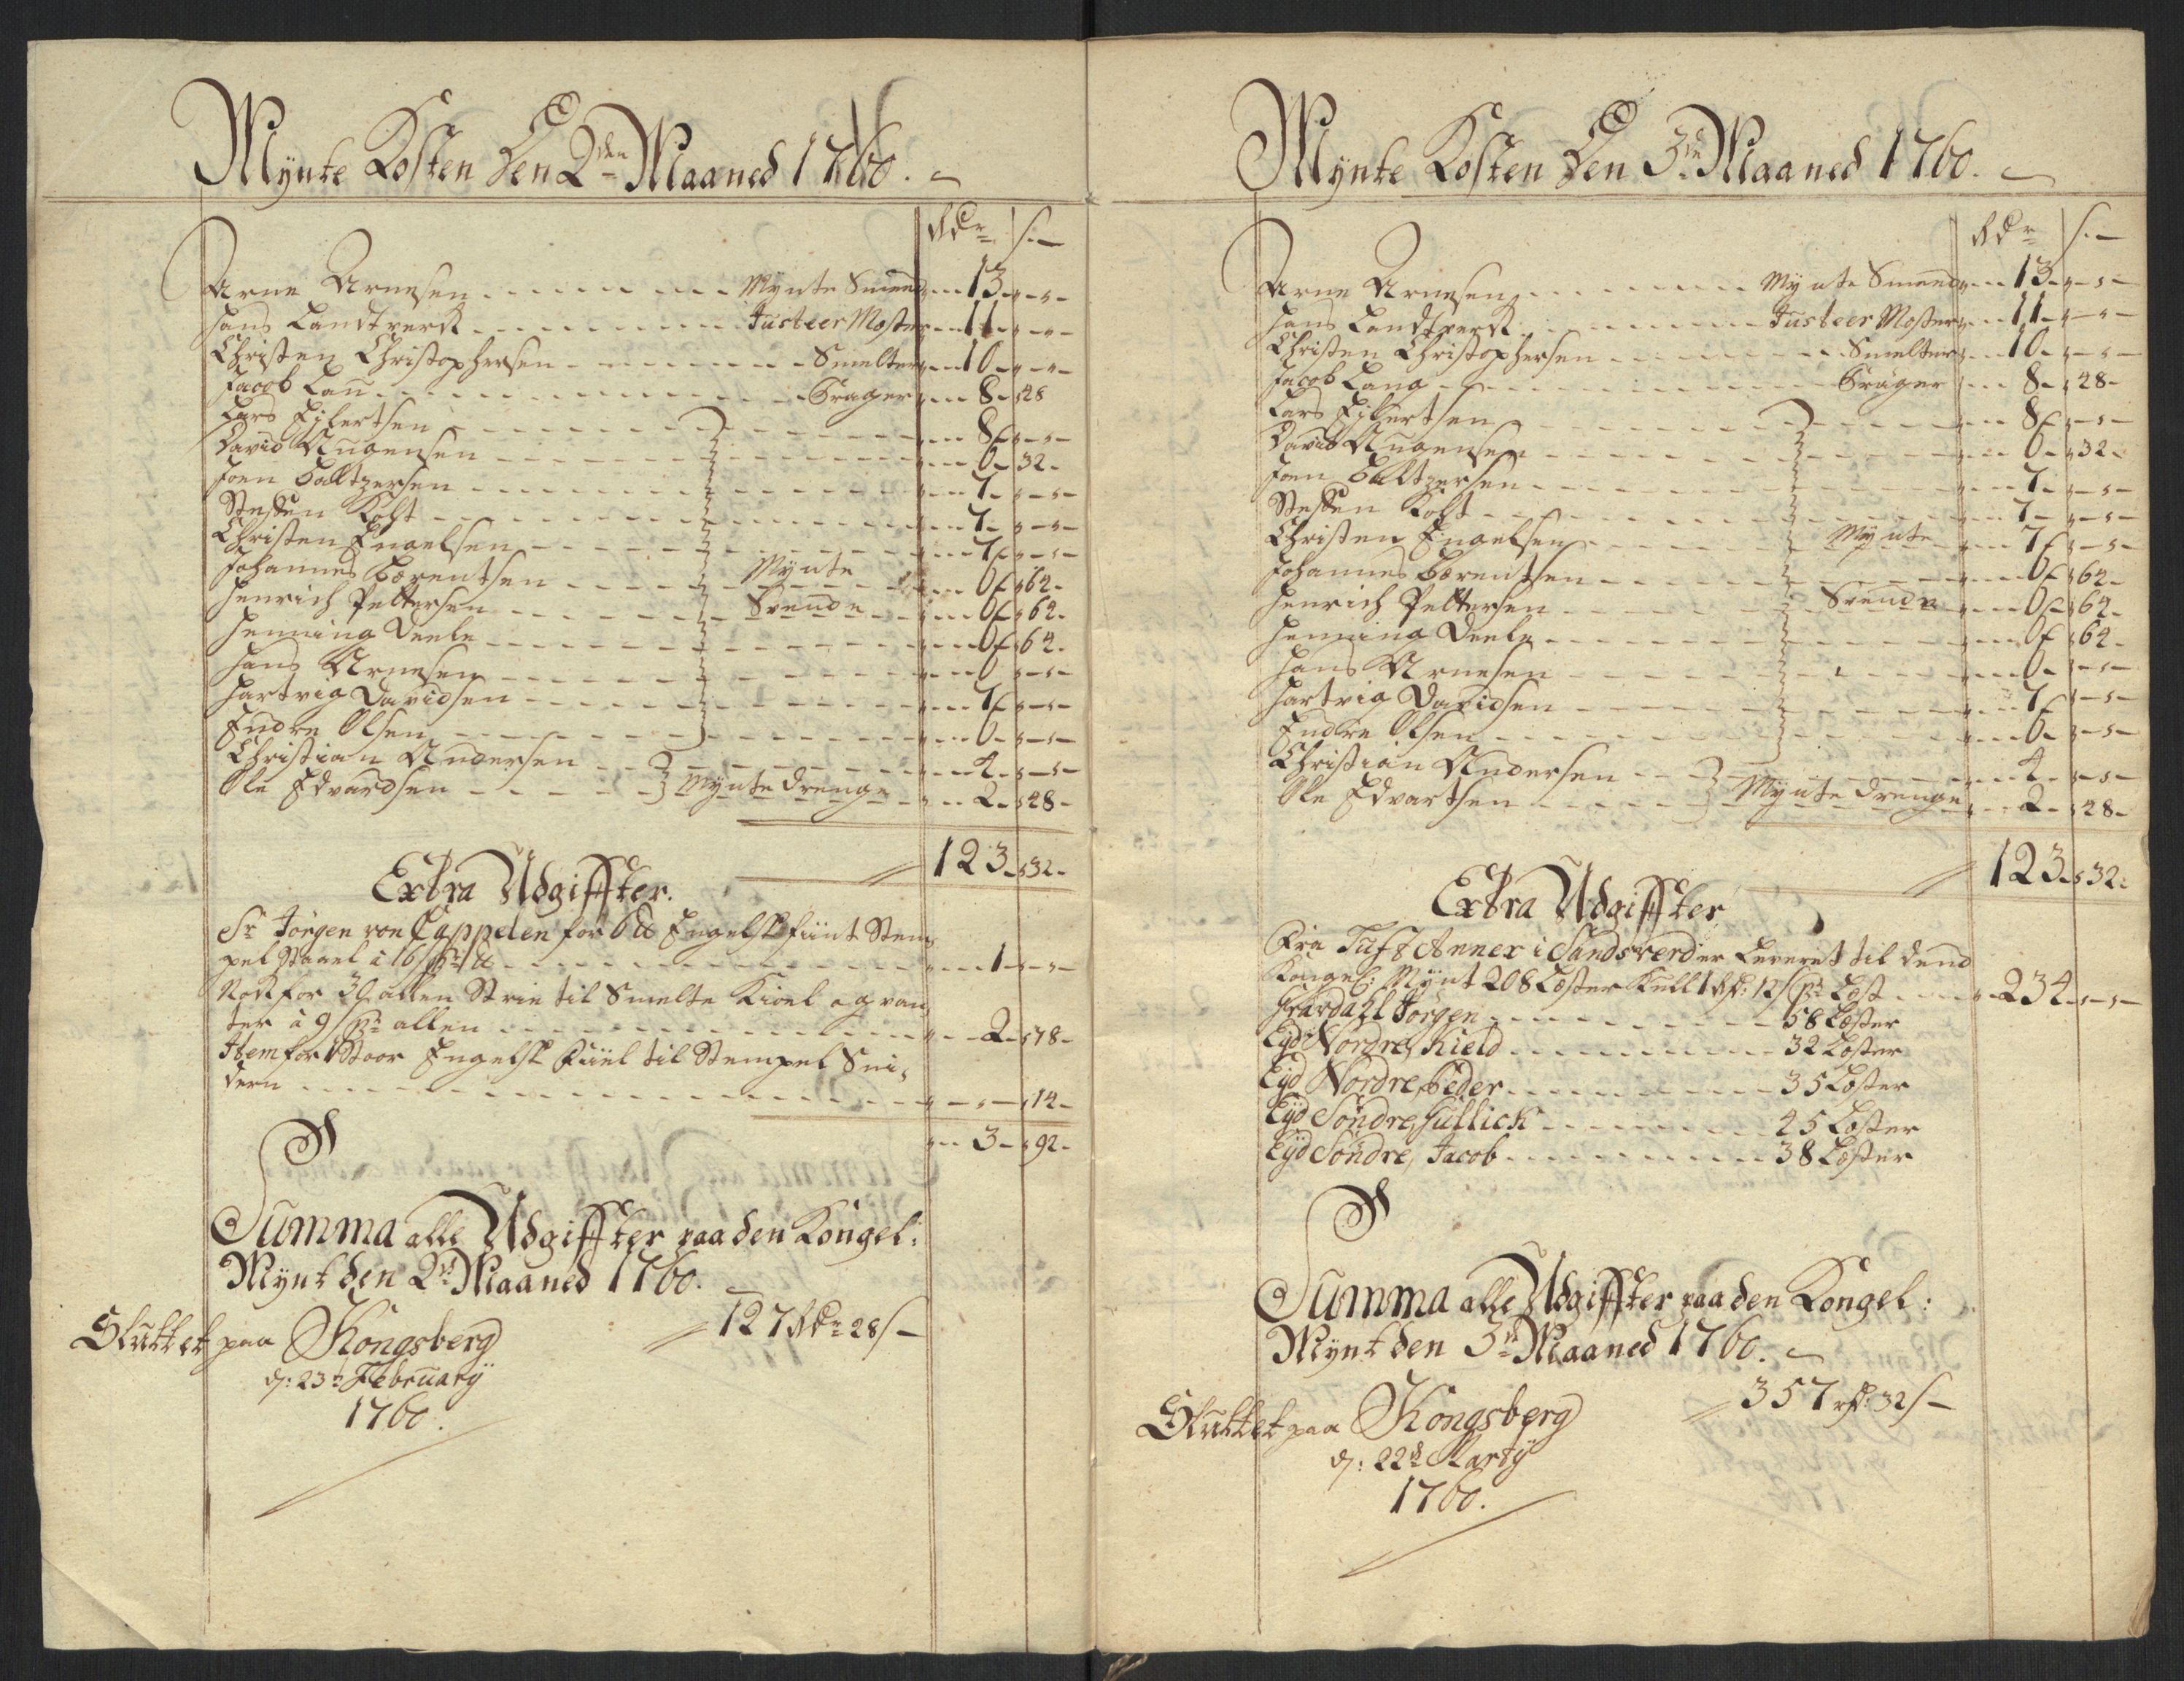 Mynte Kosten Den 2den Maaned 1760.
Rdr s.
Arne Arnesen Mynte Smed 13
Hans Landtverk Justeer Mester 11
Christen Christophersen Smelter 10
Jacob Lau Præger 8 48
Lars Eilertsen 8
David Augensen 6 32
Joen Baltzersen 7
Steffen Kolst 7
Christen Engelsen 7
Johannes Bærentsen Mynte 6 64
Henrich Peltersen Svende 6 64
Henning Deele 6 64
Hans Arnesen 6
Hartvig Davidsen 7
Endre Olsen 6
Christian Andersen 4
Ole Edvardsen Mynte Drenge 2 48
123 32
Extra Udgiffter.
Sr Jörgen von Cappelen for 6 ℔ Engelsk fiint Stem
pel Staael à 16 s pr ℔ 1
Nok for 30 allen Strie til Smelte Kioel og van
ter à 9 s pr allen 2 78
Item for 1 Stoor Engelsk Fiil til Stempel Sni
dern 14
3 92
Summa alle Udgiffter paa den Kongel:
Mynt den 2den Maaned 1760.
127 Rdr 28 s
Sluttet paa Kongsberg
d: 23de February
1760.
Mynte Kosten Den 3de Maaned 1760.
Rdr s.
Arne Arnesen Mynte Smed 13
Hans Landtverk Justeer Mester 11
Christen Christophersen Smelter 10
Jacob Lang Præger 8 48
Lars Eilertsen 8
David Augensen 6 32
Joen Baltzersen 7
Steffen Kolst 7
Christen Engelsen Mynte 7
Johannes Bærentsen 6 64
Henrich Peltersen Svende 6 64
Henning Deele 6 64
Hans Arnesen 6
Hartvig Davidsen 7
Endre Olsen 6
Christian Andersen 4
Ole Edvartsen Mynte Drenge 2 48
123 32
Extra Udgiffter
Fra Tuft Annex i Sandsverd er Leveret til dend
Kongel: Mynt 208 Læster Kull 1 Rd: 12 s pr Læst 234
Jörgen 58 Læster
Eyd Nordre, Kield 32 Læster
Eyd Nordre, Peder 35 Læster
Eyd Söndre, Gullick 45 Læster
Eyd Söndre, Jacob 38 Læster
Summa alle Udgiffter paa den Kongel:
Mynt den 3de Maaned 1760.
357 rd: 32 s
Sluttet paa Kongsberg
d: 22de Marty
1760.